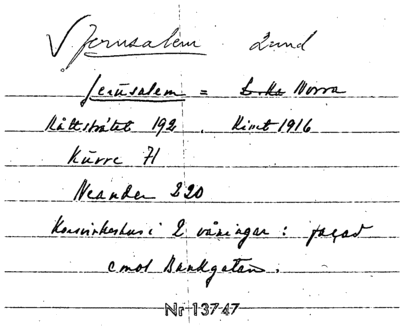 Jerusalem Lund
Jerusalem = Norra
Råttstråtet 192. Rivet 1916
Kurre 71
Neander 220
Korsvirkeshus i 2 våningar: façad
emot Bankgatan.
Nr 13747